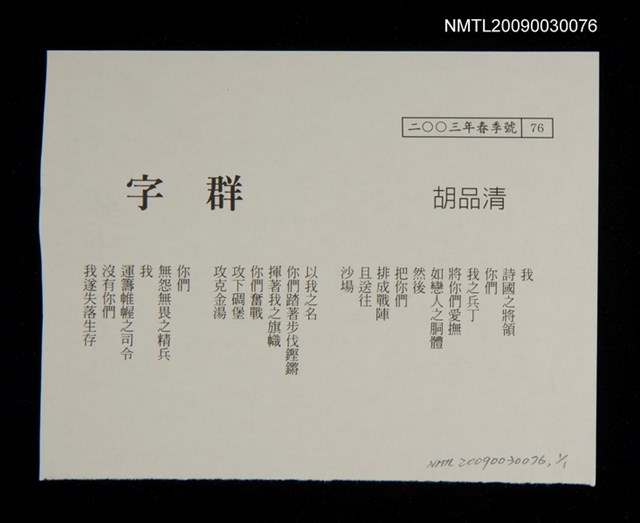 NMTL20090030076
二〇〇三年春季號 76
字群
胡品清
我
詩國之將領
你們
我之兵丁
將你們愛撫
如戀人之胴體
然後
把你們
排成戰陣
且送往
沙場
以我之名
你們踏著步伐鏗鏘
揮著我之旗幟
你們奮戰
攻下碉堡
攻克金湯
你們
無怨無畏之精兵
我
運籌帷幄之司令
沒有你們
我遂失落生存
NMTL 20090030076, 1/1